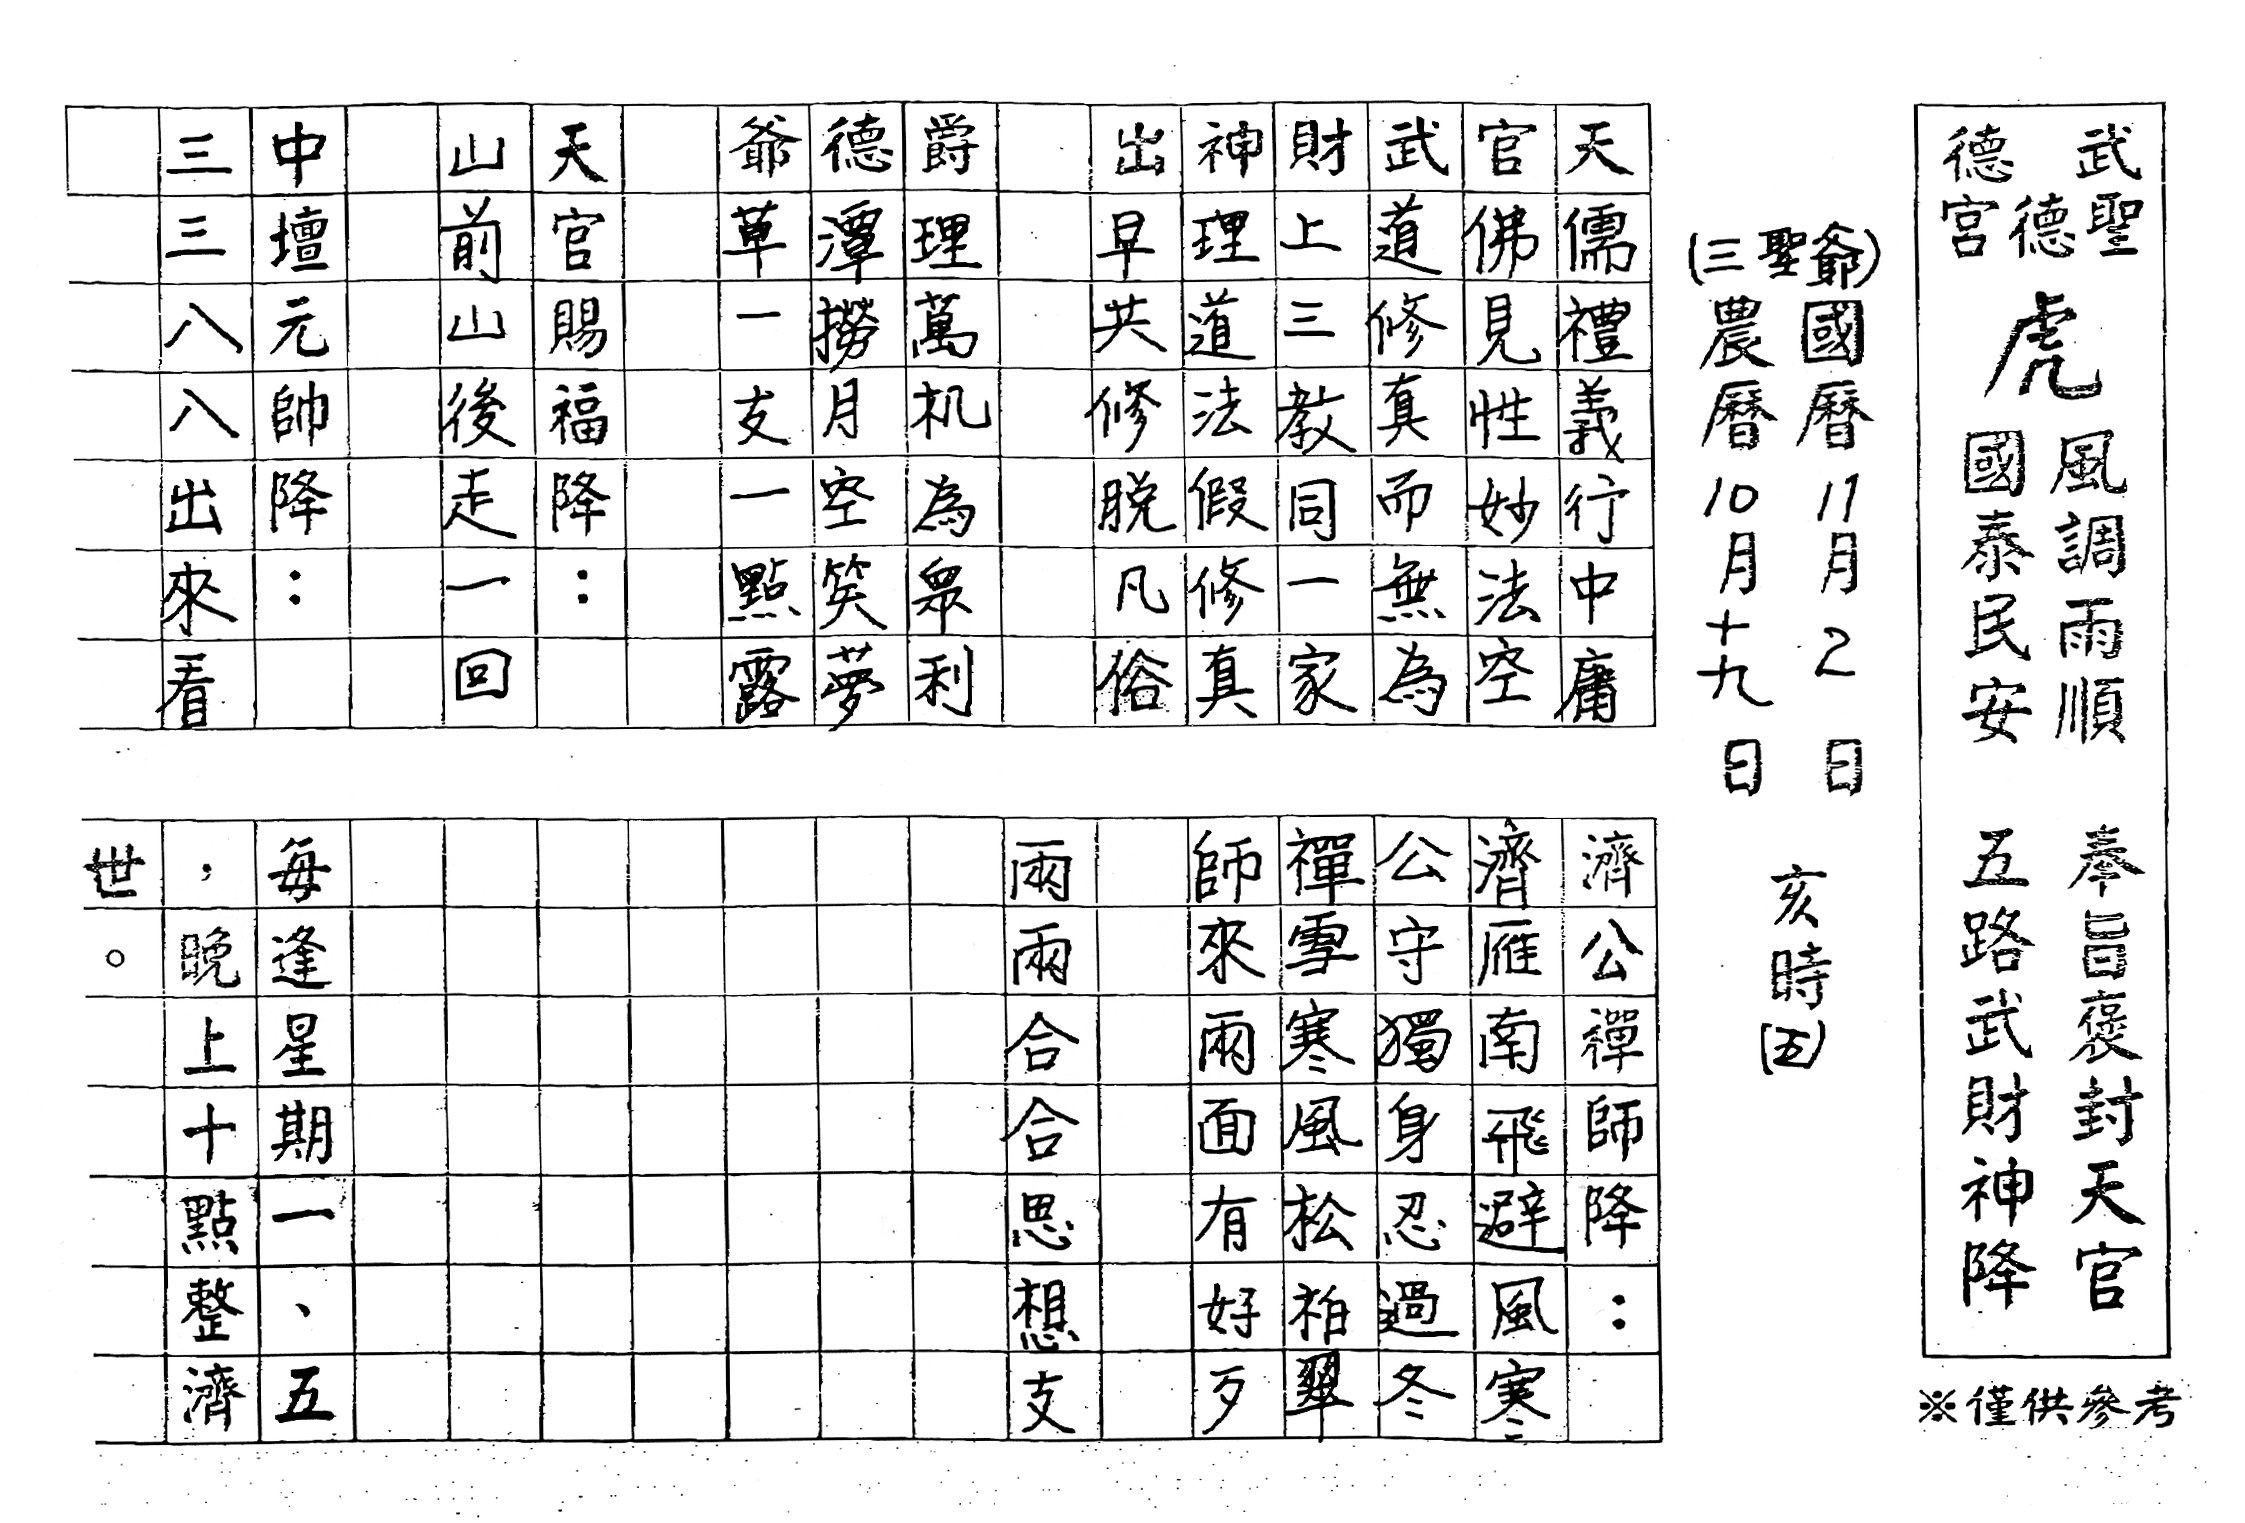 武聖
德
德宮
虎
風調雨順
國泰民安
奉旨褒封天官
五路武財神降
※僅供參考
(三聖爺)
國曆11月2日
農曆10月十九日
亥時(五)
天儒禮義行中庸
官佛見性妙法空
武道修真而無為
財上三教同一家
神理道法假修真
出早共修脫凡俗
爵理萬机為眾利
德潭撈月空笑夢
爺草一支一點露
天官賜福降:
山前山後走一回
中壇元帥降:
三三八八出來看
濟公禪師降:
濟雁南飛避風寒
公守獨身忍過冬
禪雪寒風松柏翠
師來兩面有好歹
兩兩合合思想支
每逢星期一、五
,晚上十點整濟
世。